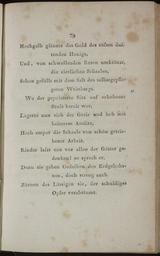 79
Hochgelb glänzte das Gold des süßen duftenden Honigs,
Und, von schwellenden
die zierlichen Schaalen,
Schon gefüllt mit dem Saft des selbstgepflegten Weinbergs.
Wo der gepolsterte Sitz
Stuhl bereit war,
Lagerte nun sich der Greis und hob mit
heiterem Antlitz,
Hoch empor die Schaale von schön getriebener Arbeit.
Kinder lasst uns vor allen der Götter gedenken! so sprach er.
Denn sie geben Gedeihen den Erdgebohrnen, doch
Zürnen des Lässigen sie, der schuldiges
Opfer versäumte.